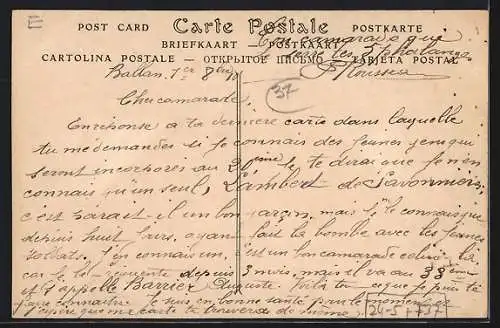 E
POST CARD Carte Postale POSTKARTE
BRIEFKAART - POSTKAART
CARTOLINA POSTALE - ОТКРЫТОЕ ПИСЬМО - TARJETA POSTAL
Ton camarade qui
serre les 5 phalanges
Ballan, 1er 8bre
37
Cher camarade,
En réponse à ta dernière carte dans laquelle
tu me demandes si je connais des jeunes gens qui
seront incorporés au 20ème, je te dirai que je n'en
connais qu'un seul, Lambert de Savonnières
c'est paraît-il un bon garçon, mais je le connais que
depuis huit jours, ayant fait la bombe avec les jeunes
soldats. J'en connais un, c'est un bon camarade celui-là
car je le fréquente depuis 3 mois, mais il va au 33ème
il s'appelle Barrier Auguste. Voilà tout ce que je puis te
faire connaître. Je suis en bonne santé pour le moment
j'espère que ma carte te trouvera de même.